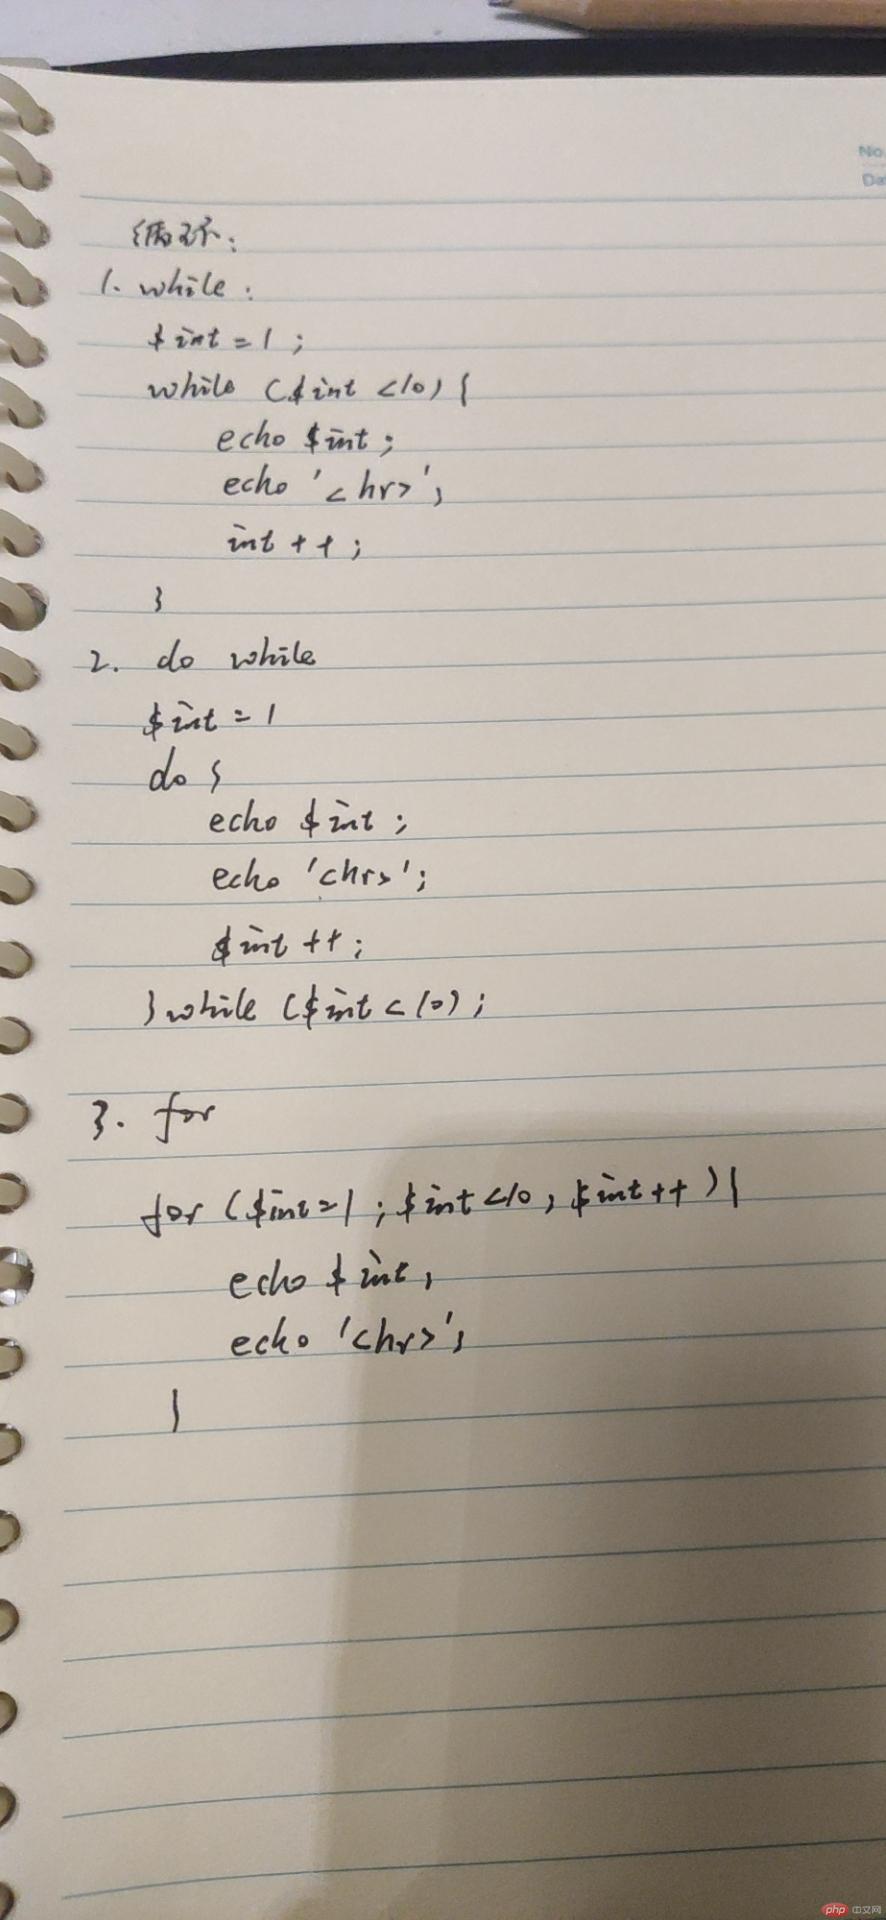 No
Da
循环:
1. while:
$int = 1;
while ($int <10) {
echo $int;
echo '<hr>';
int ++;
}
2. do while
$int = 1
do {
echo $int;
echo '<hr>';
$int ++;
}while ($int < 10);
3. for
for ($int=1; $int <10, $int++){
echo $int,
echo '<hr>';
}
php 中文网